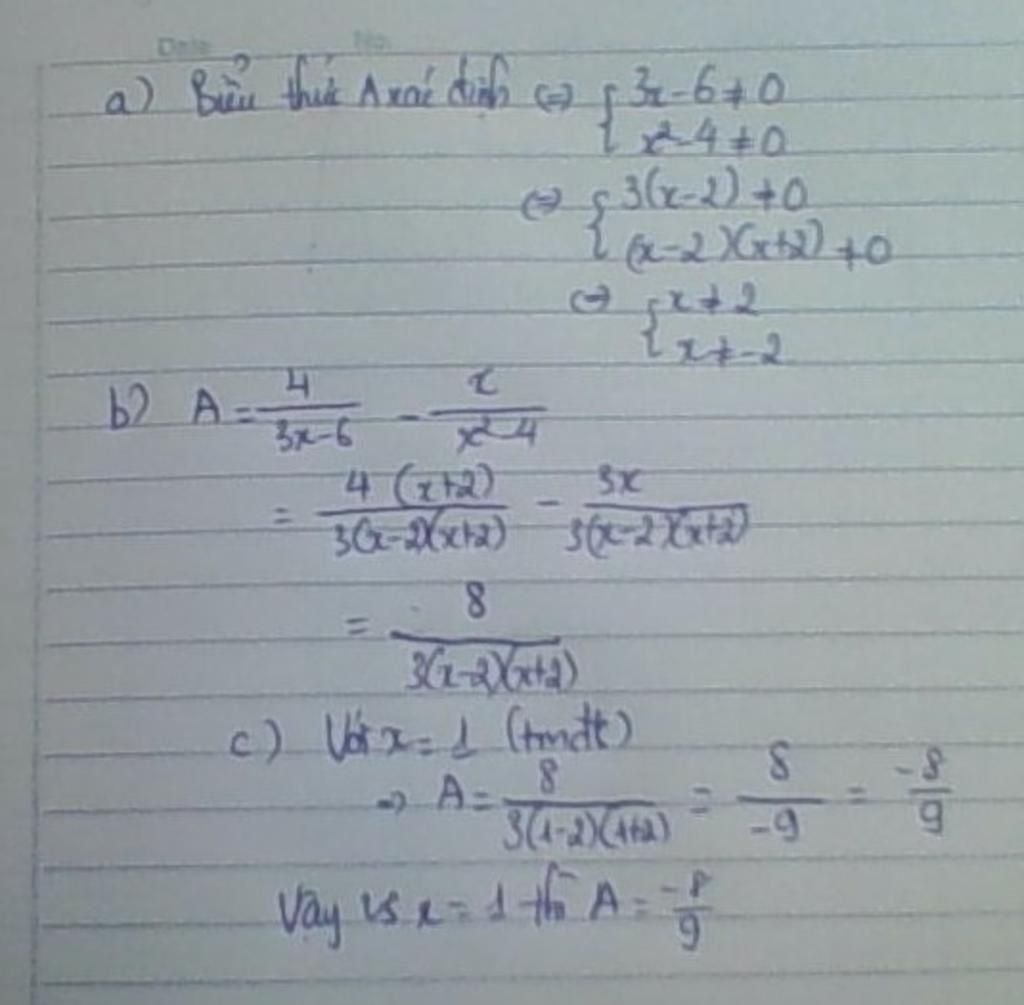 Date No.
a) Biểu thức A xác định <=> { 3x-6≠0
x²-4≠0
<=> { 3(x-2)≠0
(x-2)(x+2)≠0
<=> { x≠2
x≠-2
b) A = 4/(3x-6) - x/(x²-4)
= 4(x+2)/3(x-2)(x+2) - 3x/3(x-2)(x+2)
= 8/3(x-2)(x+2)
c) Với x=1 (tmđk)
=> A = 8/3(1-2)(1+2) = 8/-9 = -8/9
Vậy vs x=1 thì A = -8/9